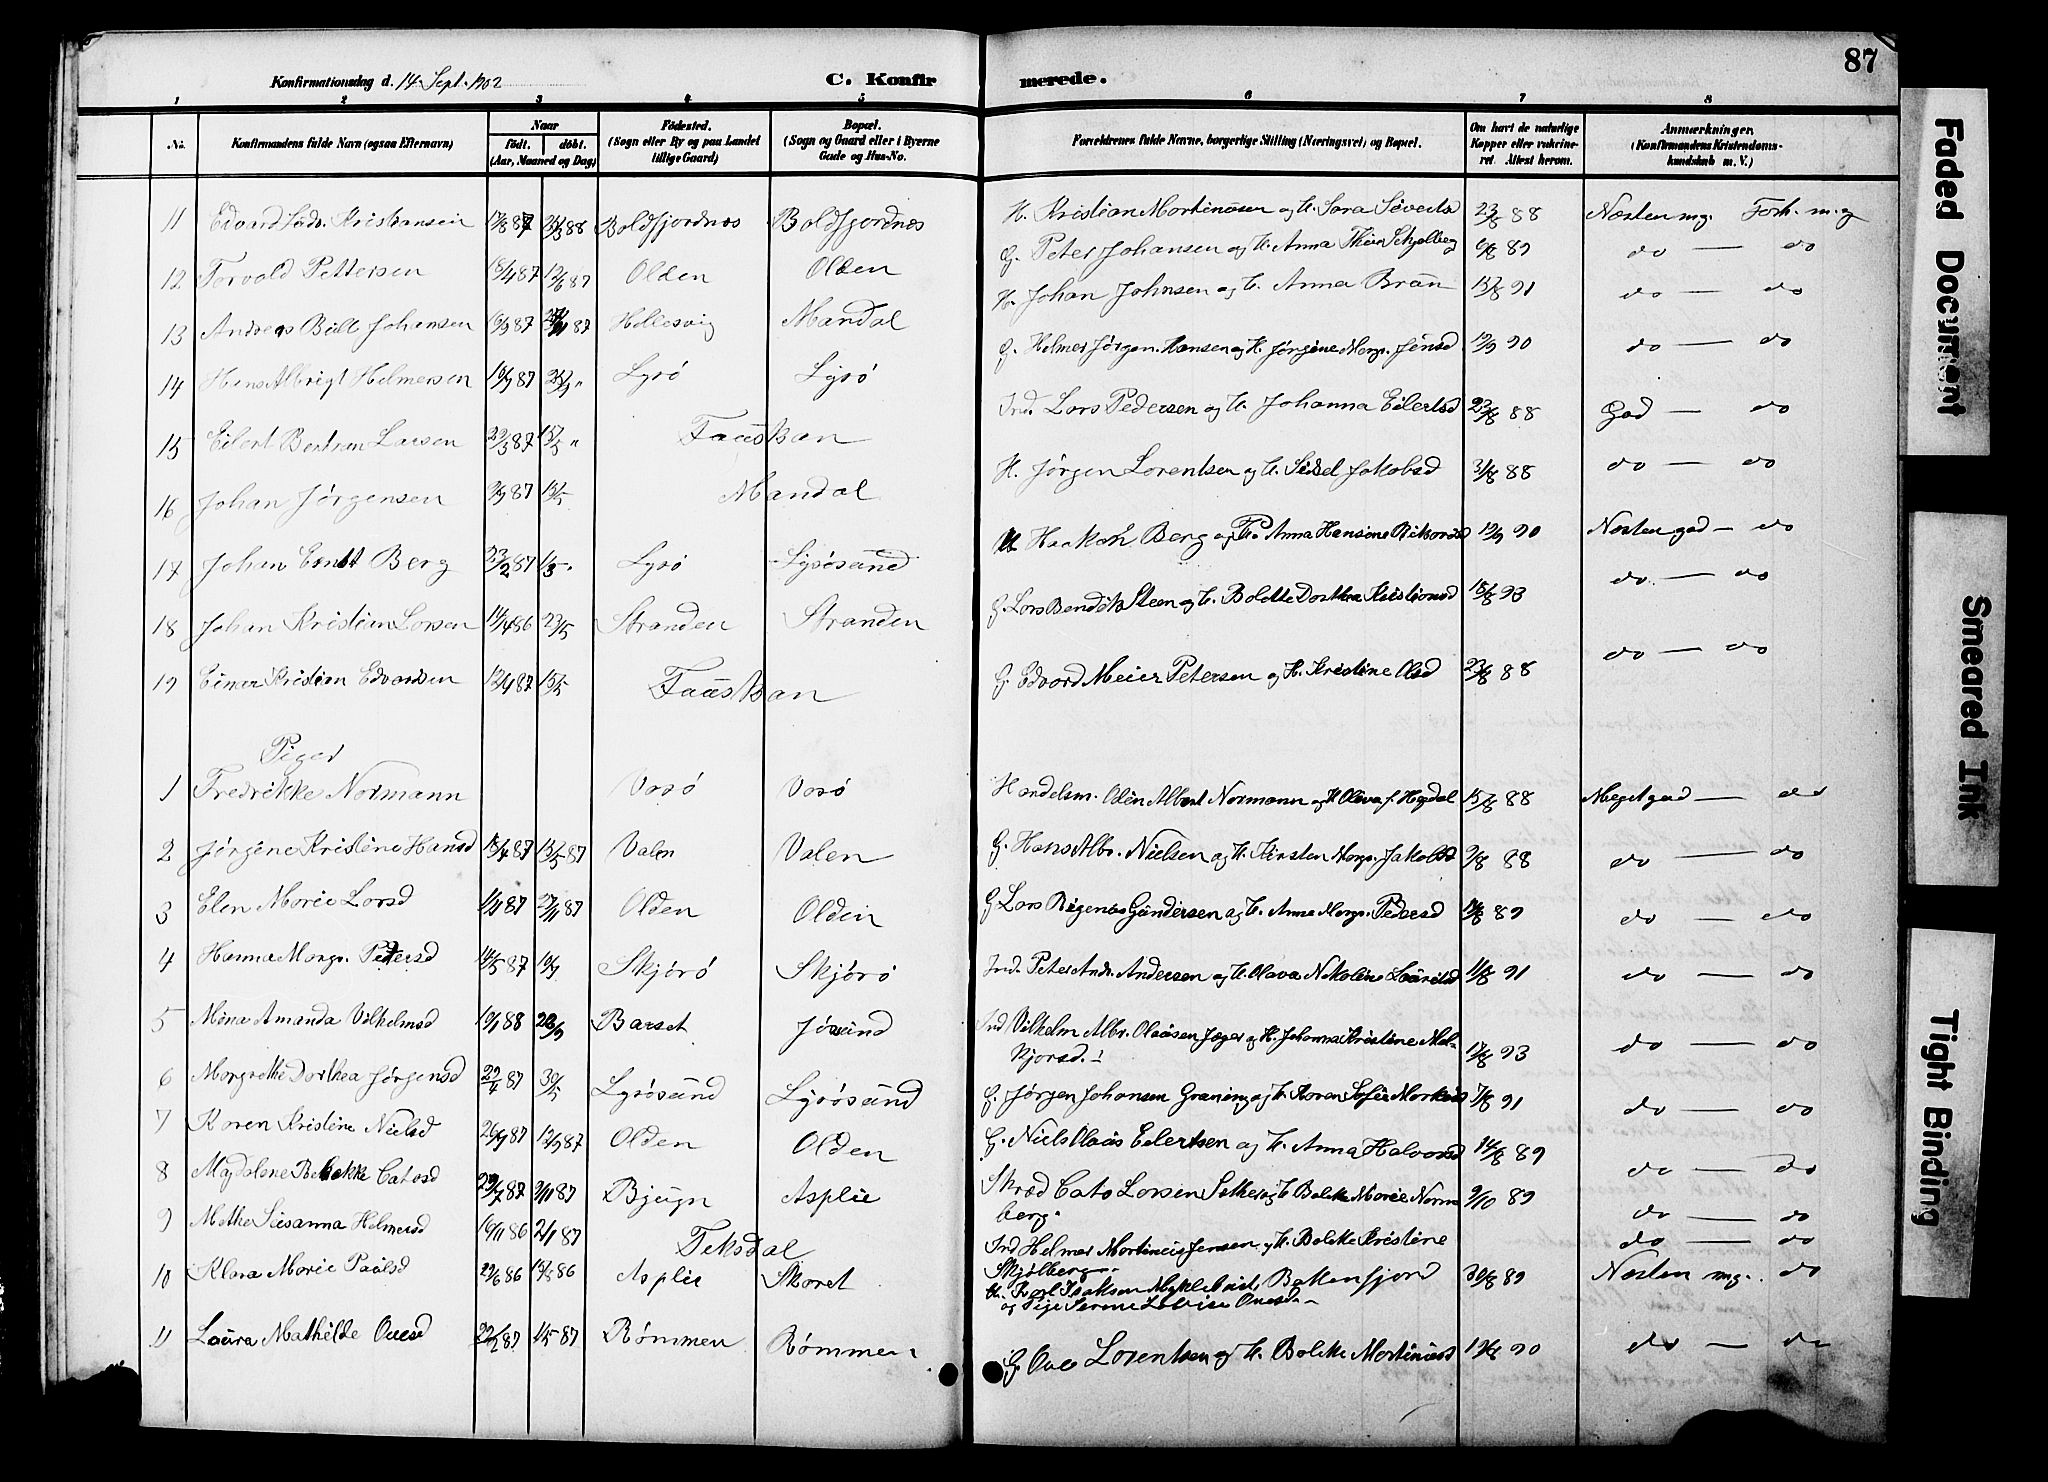 87
Konfirmationsdag d. 14 Sept. 1902
C. Konfirmerede.
1 2 3 4 5 6 7 8
No.
Konfirmandens fulde Navn (ogsaa Efternavn)
Naar
født. døbt.
(Aar, Maaned og Dag)
Fødested.
(Sogn eller By og paa Landet tillige Gaard)
Bopæl.
(Sogn og Gaard eller i Byerne Gade og Hus-No.
Forældrenes fulde Navne, borgerlige Stilling (Næringsvei) og Bopæl.
Om havt de naturlige Kopper eller vakcineret. Attest herom.
Anmærkninger.
(Konfirmandens Kristendomskundskab m. V.)
11 Edvard Kristiansen 88 Boldfjordnes Boldfjordnes H. Kristian Martinusen og H. Sara Siverts 23/8 88 Næsten mg. Forh. m.g
12 Torvald Pettersen 18/4 87 12/6 87 Olden Olden G. Peter Johansen og H. Anna Schjølberg 6/8 89 do — do
13 Andreas Johansen 16/9 87 87 Hellesvig Mandal H. Johan Johnsen og H. Anna Brun 15/8 91 do — do
14 Hans Albrigt Helmersen 87 Lysø Lysø G. Helmer Jørgen Hansen og H. Jørgine Marg. Jensd 12/9 90 do — do
15 Eilert Bertran Larsen 22/3 87 15/5 " Tausvan Ind. Lars Pedersen og H. Johanna Eilertsd 23/8 88 God — do
16 Johan Jørgensen 87 15/5 Mandal H. Jørgen Lorentsen og H. Sidsel Jakobsd 31/8 88 do — do
17 Johan Ernst Berg 23/2 87 Lysø Lysøsund Haakon Berg og Anna Hansine Rikardsd 12/9 90 Næsten god — do
18 Johan Kristian Larsen 11/4 86 23/5 Stranden Stranden G. Lars Bendik Steen og H. Bolette Dorthea Kristiansd 18/8 93 do — do
19 Einar Kristian Edvardsen 87 15/5 Tausvan G. Edvard Meier Petersen og H. Kristine Olsd 23/8 88 do — do
Piger
1 Fredrikke Normann Vasø Vasø Handelsm. Odin Albert Normann og H. Olava f. Hogdal 15/8 88 Meget god — do
2 Jørgine Kristine Hansd 18/4 87 15/5 87 Valen Valen G. Hans Albr. Nielsen og H. Kirsten Marg. Jakobsd 9/8 88 do — do
3 Elen Marie Larsd 87 27/11 87 Olden Olden G. Lars Gundersen og H. Anne Marg. Pedersd 89 do — do
4 Hanna Marg. Petersd 14/5 87 10/7 Skjørø Skjørø Ind. Peter Andr. Andersen og H. Olava Nikoline Lauritsd 11/8 91 do — do
5 Mina Amanda Vilhelmsd 19/1 88 Barset Jøssund Ind Vilhelm Albr. Olausen Jæger og H. Johanna Kristine Melkjorsd. 17/8 93 do — do
6 Margrethe Dorthea Jørgensd 29/4 87 30/5 Lysøsund Lysøsund G. Jørgen Johansen Graning og H. Karen Sofie Markusd 7/8 91 do — do
7 Karen Kristine Nielsd 26/7 87 12/9 87 Olden Olden G. Niels Olaus Eilertsen og H. Anna Halvorsd 14/8 89 do — do
8 Magdalene Catosd 29/7 87 87 Bjugn Asplie Skræd Cato Larsen og H. Bolette Marie Normaberg. 9/10 89 do — do
9 Mette Susanna Helmersd 19/11 86 2/1 87 Teksdal Ind Helmer Martinus Jensen og H. Bolette Kristine Skjølberg. do — do
10 Klara Marie Paulsd 29/6 86 86 Asplie Skoret U. Karl Isaksen Myklebust, Batten fjord og Pige Serine Lovise Ovesd. — 30/8 89 Næsten mg. do
11 Laura Mathilde Ovesd 22/2 87 1/5 87 Rømmen Rømmen G. Ove Lorentsen og H. Bolette Martinusd 19/8 90 do — do
Faded Document
Smeared Ink
Tight Binding